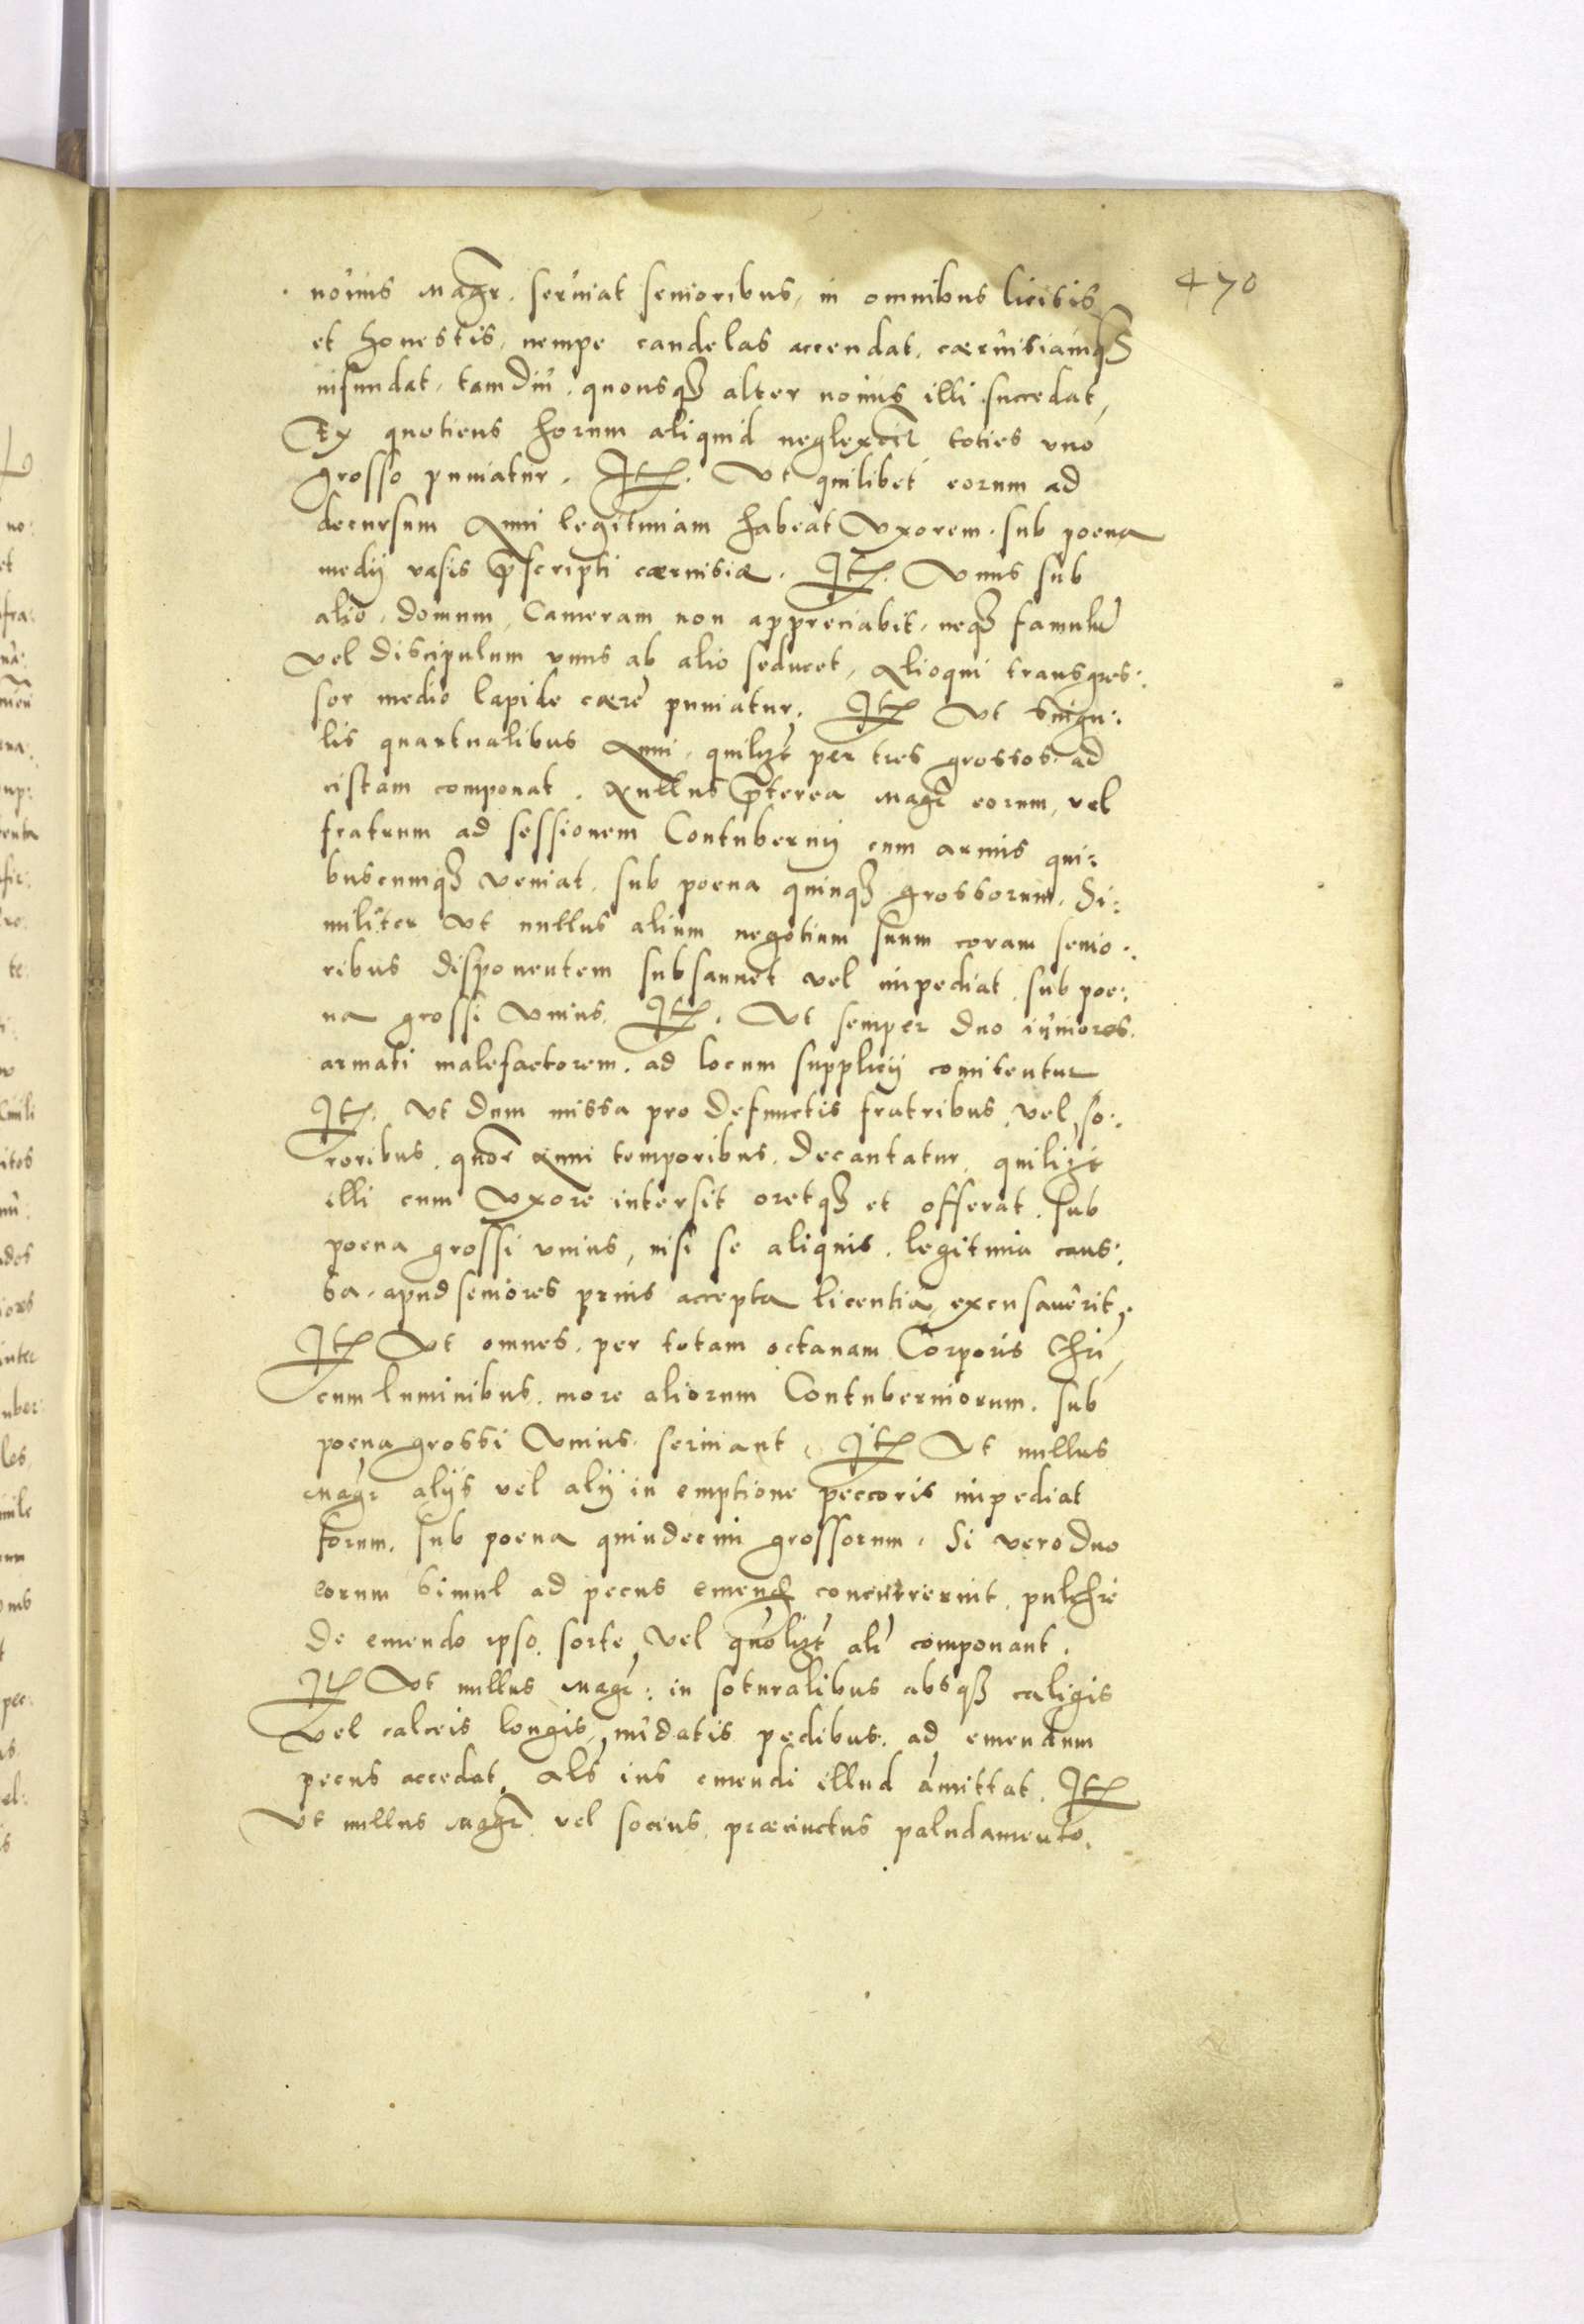 novus Magr. serviat senioribus, in omnibus licitis 470
et honestis, nempe candelas accendat, cærvisiamqꝫ
infundat, tamdiu, quousqꝫ alter novus illi succedat,
Et quotiens horum aliquid neglexerit toties uno
grosso puniatur. Itꝫ. Ut quilibet eorum ad
decursum Anni legitimam habeat Uxorem, sub poena
medij vasis p̄scripti cærvisiæ. Itꝫ. Unus sub
alio, domum, Cameram non appreciabit, neqꝫ famulū
vel discipulum unus ab alio seducet, Alioqui transgres:
sor medio lapide cæræ puniatur, Itꝫ Ut singu:
lis quartualibus Anni, quilꝫt per tres grossos ad
cistam componat. Nullus p̄terea Magr̄ eorum, vel
fratrum ad sessionem Contubernij cum armis qui:
buscumqꝫ veniat, sub poena quinqꝫ grossorum. Si:
militer ut nullus alium negotium suum coram senio:
ribus disponentem subsannet vel impediat, sub poe:
na grossi Unius. Itꝫ. Ut semper duo iuniores
armati malefactorem, ad locum supplicij comitentur
Itꝫ. Ut dum missa pro defunctis fratribus, vel so:
roribus, quor̄ Anni temporibus, decantatur, quilibꝫt
illi cum Uxore intersit oretqꝫ et offerat, sub
poena grossi unius, nisi se aliquis, legitima caus:
sa, apud seniores prius accepta licentia, excusaverit.
Itꝫ Ut omnes, per totam octavam Corporis Chr̄i,
cum luminibus, more aliorum Contuberniorum, sub
poena grossi Unius serviant, Itꝫ Ut nullus
Magr̄ alijs vel alij in emptione peccoris impediat
forum, sub poena quindecim grossorum, Si vero duo
eorum simul ad pecus emendū concurrerint, pulchre
de emendo ipso, sorte, vel quolꝫt alr̄ componant.
Itꝫ Ut nullus Magr̄: in soturalibus absqꝫ caligis
vel calceis longis, nudatis pedibus, ad emendum
pecus accedat, als̄ ius emendi illud amittat. Itꝫ
Ut nullus Magr̄ vel socius, præcinctus paludamento,